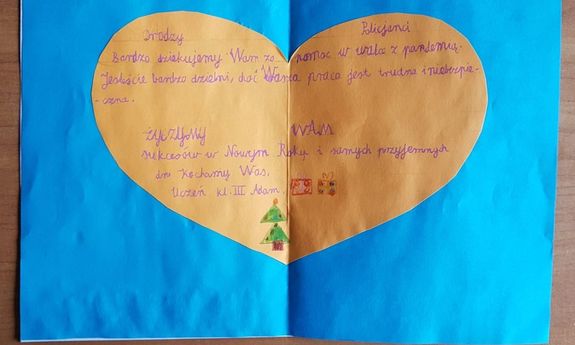 Drodzy Policjanci
Bardzo dziękujemy Wam za pomoc w walce z pandemią.
Jesteście bardzo dzielni, choć Wasza praca jest trudna i niebezpie-
-czna.
ŻYCZYMY WAM
sukcesów w Nowym Roku i samych przyjemnych
dni. Kochamy Was.
Uczeń kl. III Adam.